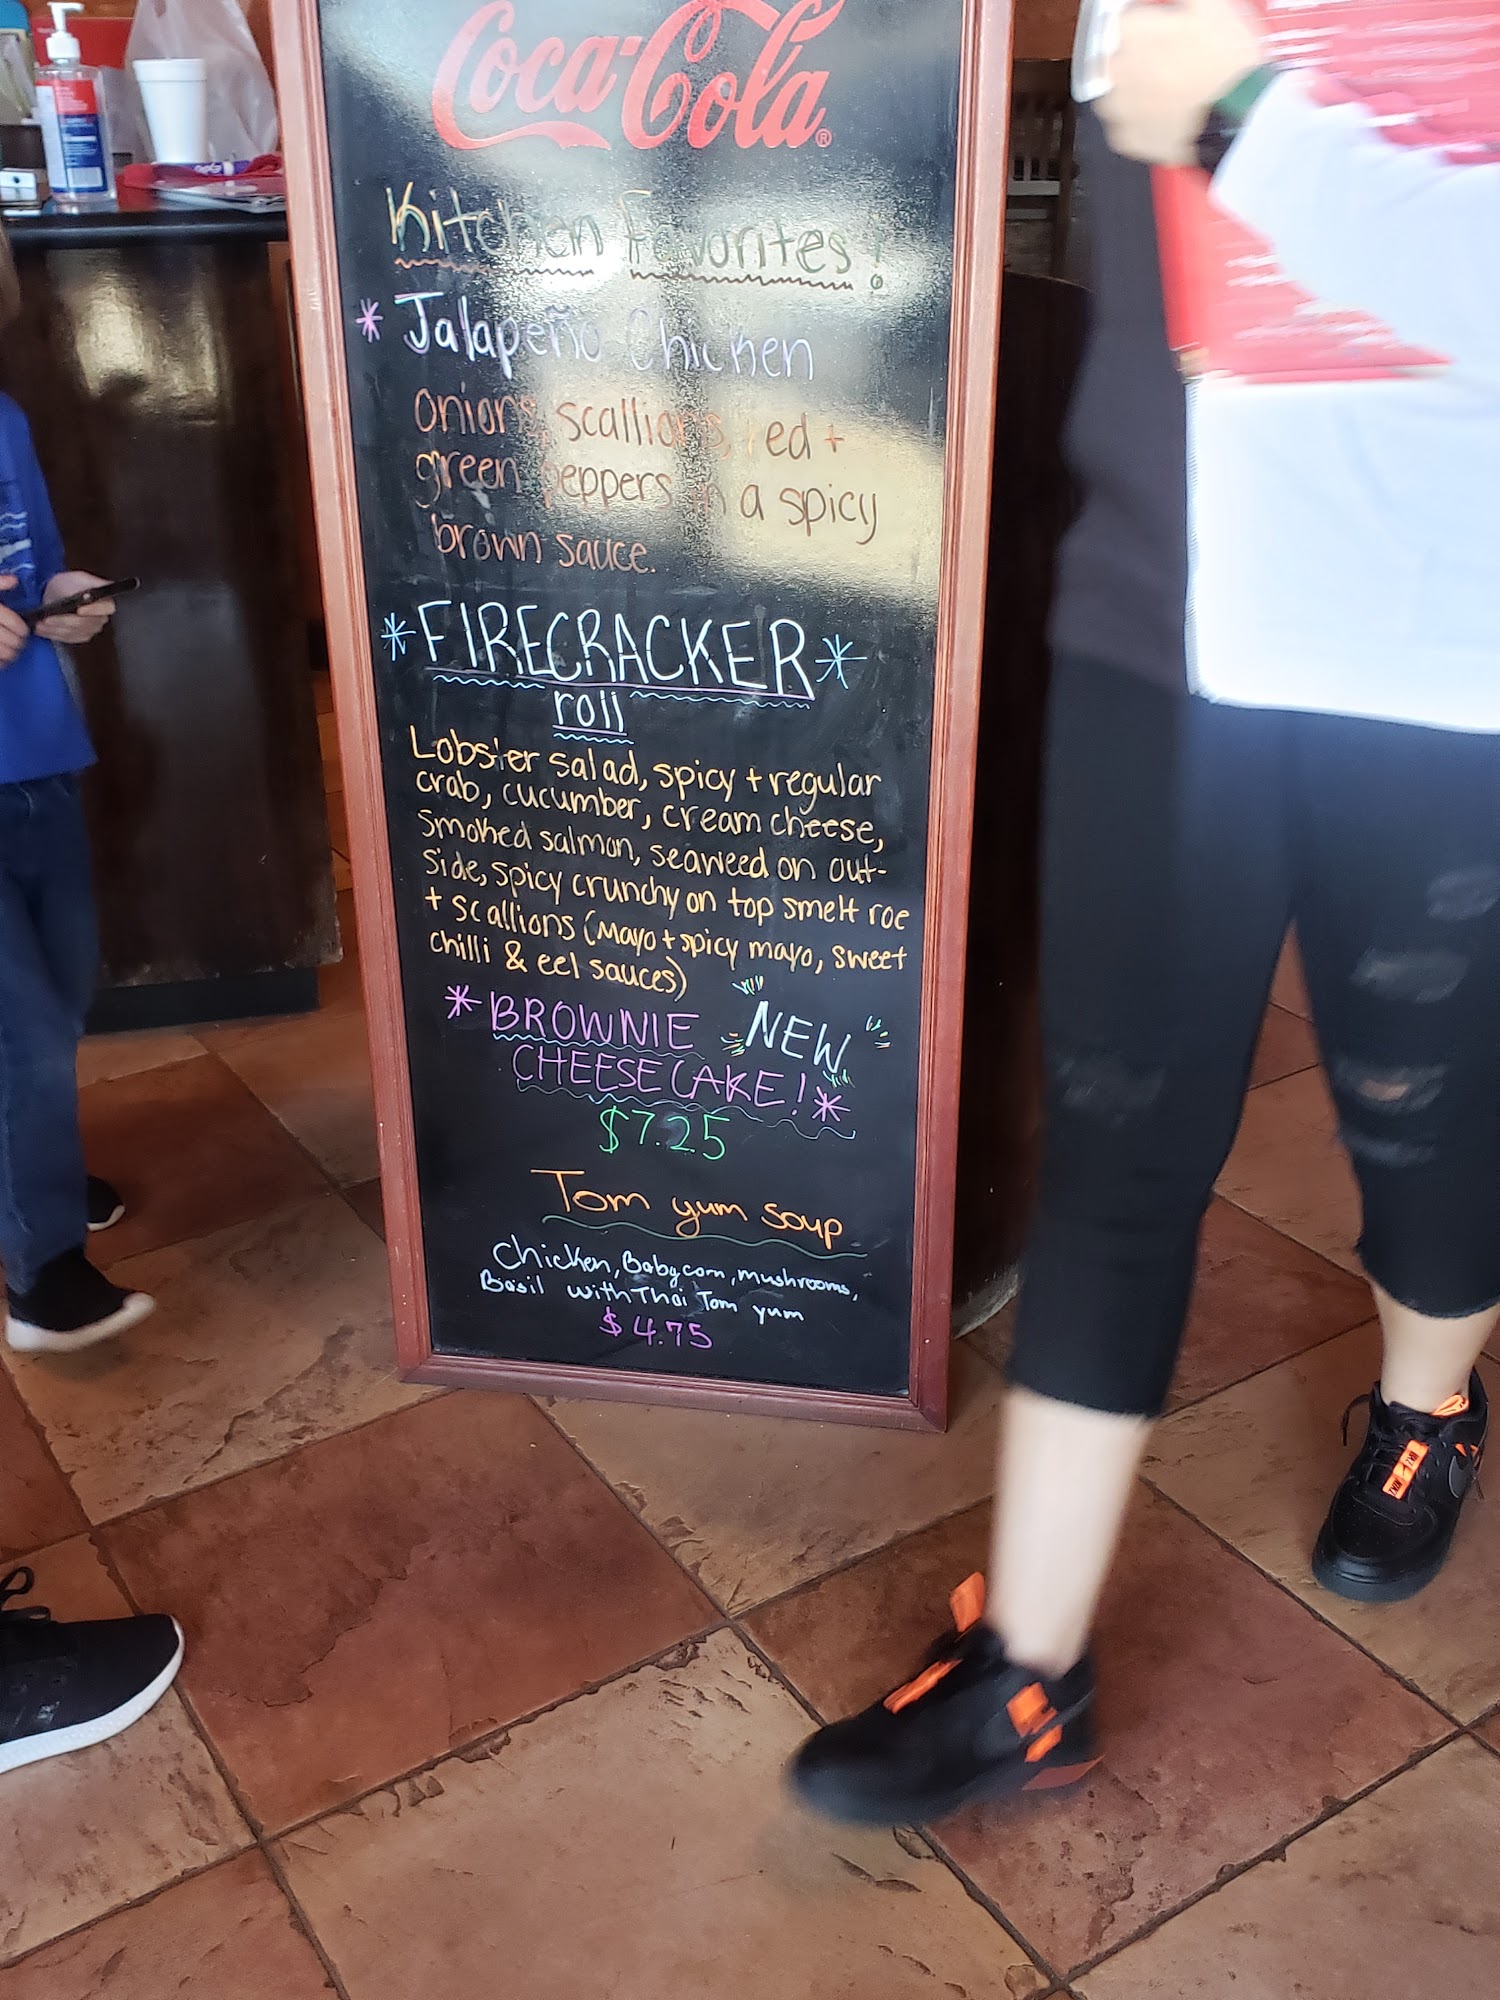 Coca-Cola®
Kitchen Favorites!
* Jalapeño Chicken
onions, scallions, red +
green peppers in a spicy
brown sauce.
*FIRECRACKER*
roll
Lobster salad, spicy + regular
crab, cucumber, cream cheese,
smoked salmon, seaweed on out-
side, spicy crunchy on top smelt roe
+ scallions (Mayo + spicy mayo, sweet
chilli & eel sauces)
*BROWNIE NEW
CHEESECAKE!*
$7.25
Tom yum soup
Chicken, Baby corn, mushrooms,
Basil with Thai Tom yum
$4.75